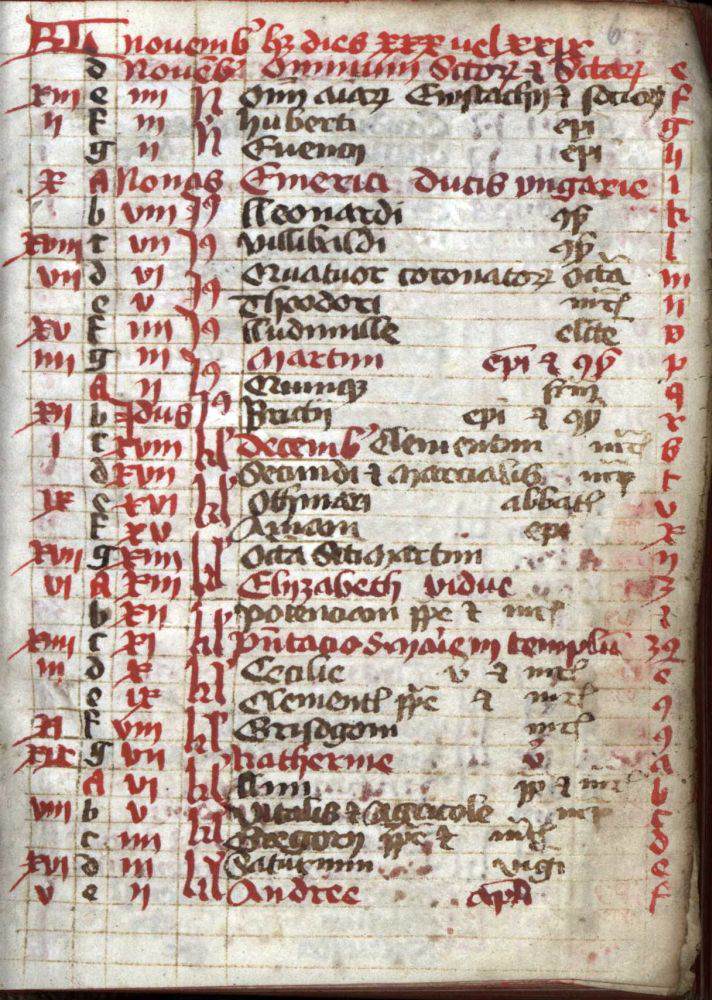 KL novemb' hz dies xxx vel xxix 6
d Novēb' Omnium Sctorꝝ & Sctarꝝ e
xiii e iiii N Oīm aīarꝝ Eustachij & socioꝝ f
ii f iii N huberti epi g
g ii N Euencij epi h
x A Nonas Emerici ducis vngarie i
b viii Leonardi k
xviii c vii villibaldi l
vii d vi Quatuor coronatorꝝ m
e v Theodori n
xv f iiii Ludmille o
iiii g iii Martini epi & p
A ii q
xii b Idus Briccij epi & r
i c xviii kl decemb' Clementini s
d xvii Secundi & Marcialis t
ix e xvi kl Othmari abbat v
f xv Aniani epi x
xvii g xiiii kl Octa Scti Martini y
vi A xiii Elyzabeth vidue z
b xii kl potenciani ppe &
xiiii c xi pn̄tacio s marie in templū
iii d x kl Cecilie v &
e ix Clement ppe &
xi f viii kl Grisogoni
xix g vii katherine v
A vi kl Lini pp &
viii b v vitalis & agricole
c iiii kl Gregorij ppe &
xvi d iii Saturnini vigi
v e ii kl Andree apli